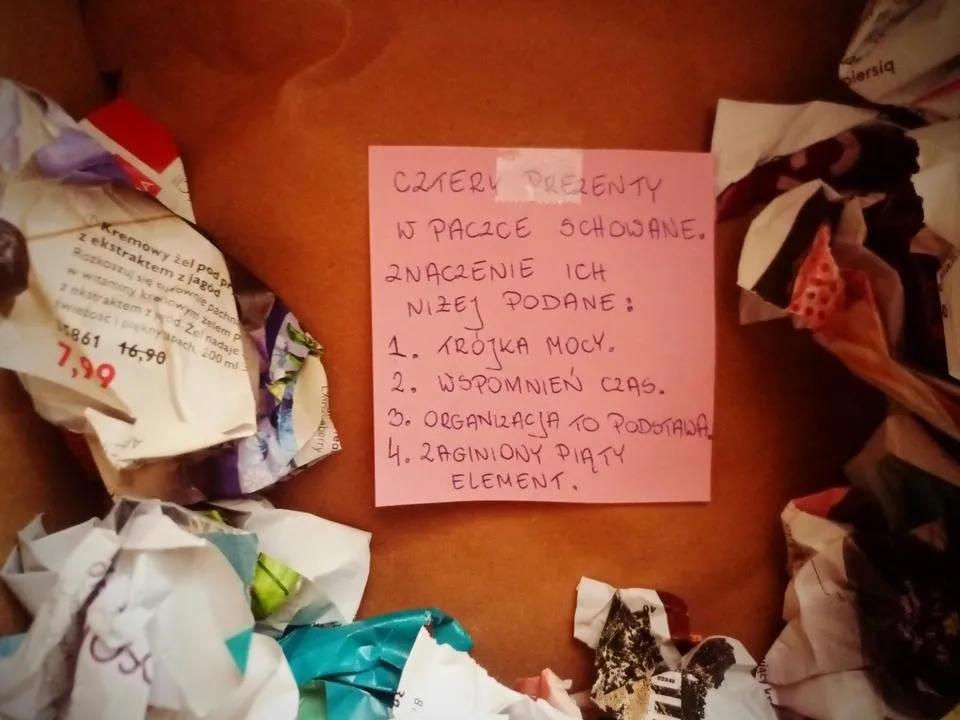 CZTERY PREZENTY
W PACZCE SCHOWANE.
ZNACZENIE ICH
NIŻEJ PODANE:
1. TRÓJKA MOCY.
2. WSPOMNIEŃ CZAS.
3. ORGANIZACJA TO PODSTAWA.
4. ZAGINIONY PIĄTY
ELEMENT.
Kremowy żel pod
z ekstraktem z jagód
Rozkoszuj się
w witaminy kremowym żelem
z ekstraktem z jagód. Żel nadaje
200 ml
5861 16,90
7,99
piersią